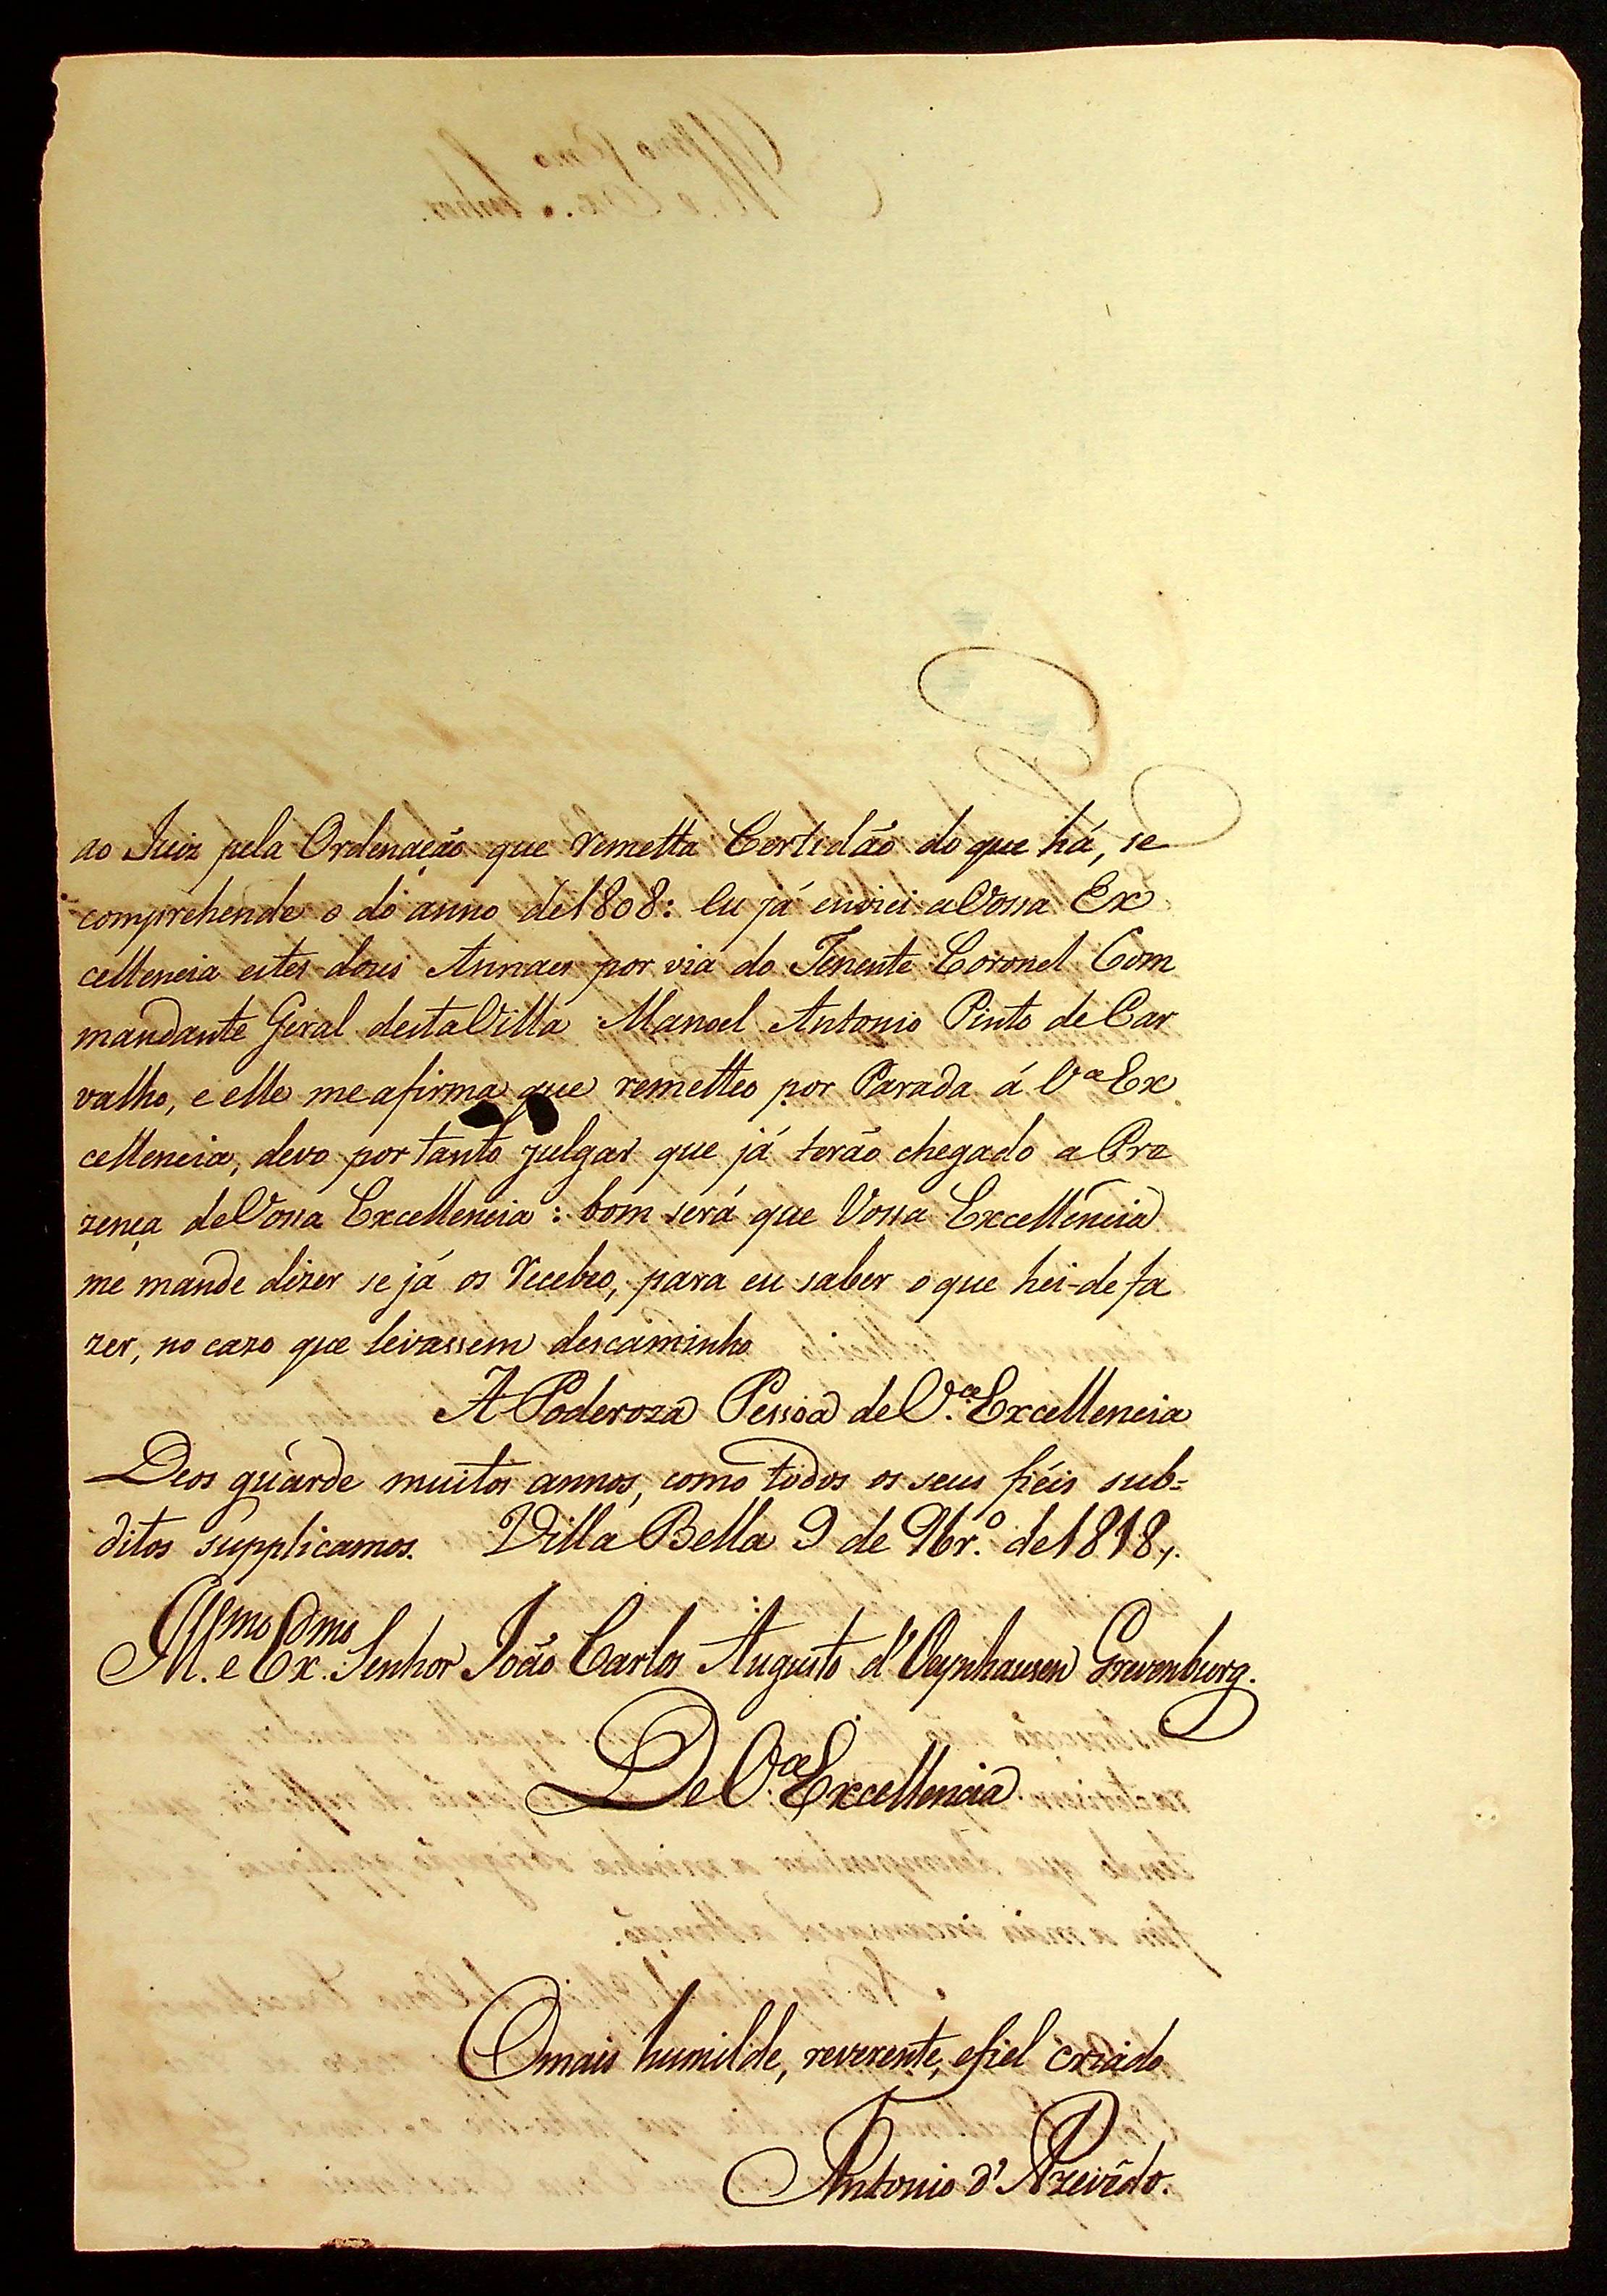 ao Juiz pela Ordenação que remetta Certidão do que há, se
comprehende o do anno de 1808: Eu já enviei a Vossa Ex
cellencia estes dous Annaes por via do Tenente Coronel Com
mandante Geral desta Villa Manoel Antonio Pinto de Car
valho, e elle me afirma que remetteo por Parada á V.ª Ex
cellencia, devo por tanto julgar que já terão chegado a Pre
zença de Vossa Excellencia: bom será que Vossa Excellencia
me mande dizer se já os recebeo, para eu saber o que hei-de fa
zer, no cazo que levassem descaminho
A Poderoza Pessoa de V.ª Excellencia
Deos guarde muitos annos, como todos os seus fiéis sub=
ditos supplicamos. Villa Bella 9 de 9br.º de 1818,,
Ill.mo e Ex.mo Senhor João Carlos Augusto d'Oeynhausen Grevenburg.
De V.ª Excellencia
O mais humilde, reverente, e fiel criado
Antonio d'Azevêdo.